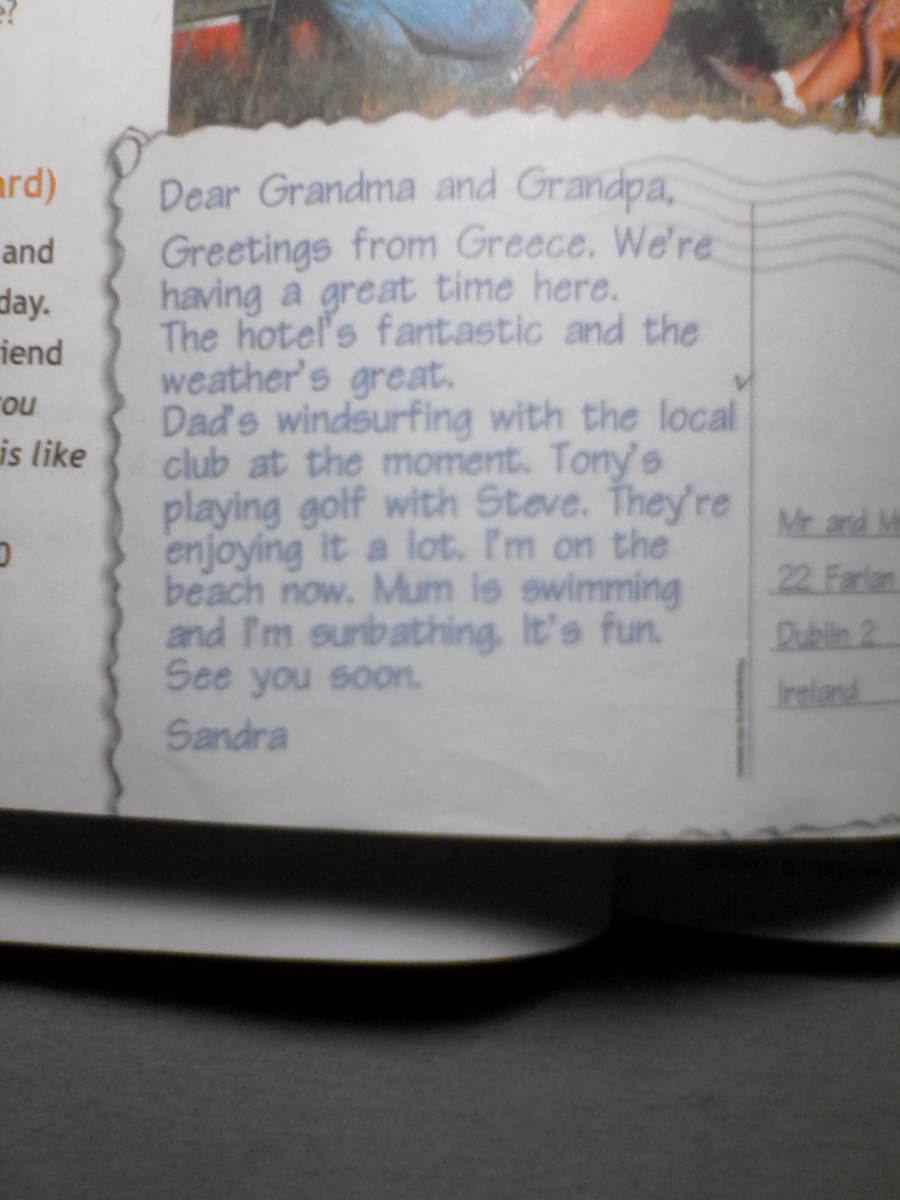 e?
ard)
and
day.
riend
you
is like
0
Dear Grandma and Grandpa,
Greetings from Greece. We're
having a great time here.
The hotel's fantastic and the
weather's great.
Dad's windsurfing with the local
club at the moment. Tony's
playing golf with Steve. They're
enjoying it a lot. I'm on the
beach now. Mum is swimming
and I'm sunbathing. It's fun.
See you soon.
Sandra
Mr and M
22 Farlan
Dublin 2
Ireland